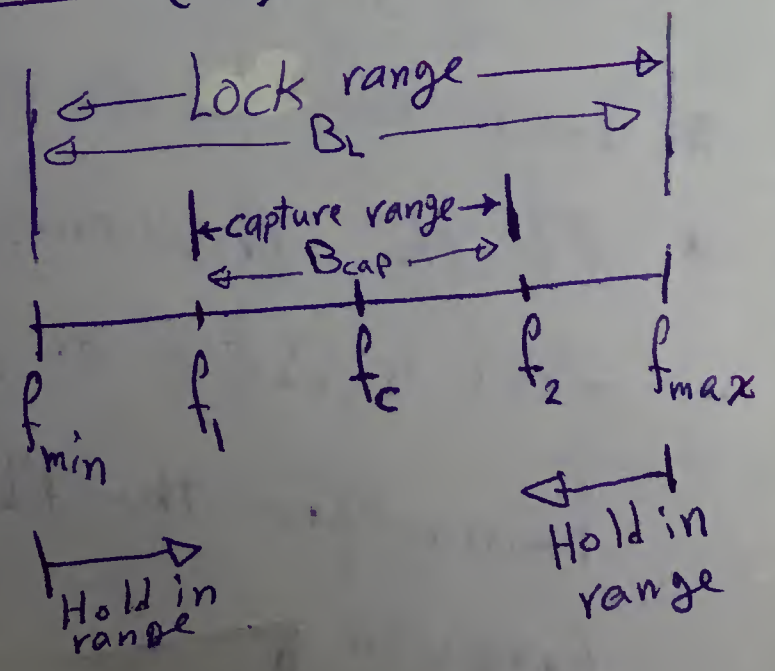 Lock range
BL
capture range
Bcap
fmin f1 fc f2 fmax
Hold in
range
Hold in
range